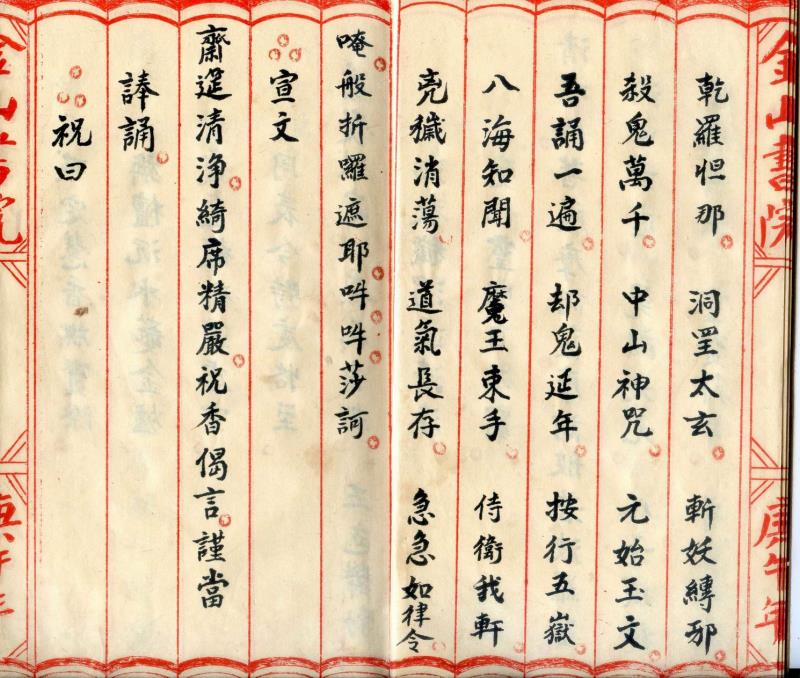 金山書院 庚午年
乾羅怛那 洞罡太玄 斬妖縛邪
殺鬼萬千 中山神咒 元始玉文
吾誦一遍 却鬼延年 按行五嶽
八海知聞 魔王束手 侍衛我軒
兇穢消蕩 道氣長存 急急如律令
唵般折囉遮耶吽吽莎訶
宣文
齋筵清淨綺席精嚴祝香偈言謹當
誦
祝曰
金山書院 庚午年